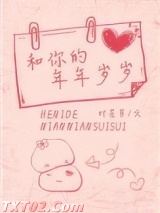 和你的
年年岁岁
HENIDE
NIANNIANSUISUI
TXT02.COM